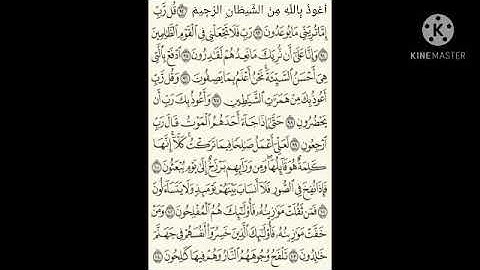 أَعُوذُ بِاللَّهِ مِنَ الشَّيْطَانِ الرَّجِيمِ قُل رَّبِّ
إِمَّا تُرِيَنِّي مَا يُوعَدُونَ رَبِّ فَلَا تَجْعَلْنِي فِي الْقَوْمِ الظَّالِمِينَ
وَإِنَّا عَلَىٰ أَن نُّرِيَكَ مَا نَعِدُهُمْ لَقَادِرُونَ ادْفَعْ بِالَّتِي
هِيَ أَحْسَنُ السَّيِّئَةَ نَحْنُ أَعْلَمُ بِمَا يَصِفُونَ وَقُل رَّبِّ
أَعُوذُ بِكَ مِنْ هَمَزَاتِ الشَّيَاطِينِ وَأَعُوذُ بِكَ رَبِّ أَن
يَحْضُرُونِ حَتَّىٰ إِذَا جَاءَ أَحَدَهُمُ الْمَوْتُ قَالَ رَبِّ
ارْجِعُونِ لَعَلِّي أَعْمَلُ صَالِحًا فِيمَا تَرَكْتُ كَلَّا إِنَّهَا
كَلِمَةٌ هُوَ قَائِلُهَا وَمِن وَرَائِهِم بَرْزَخٌ إِلَىٰ يَوْمِ يُبْعَثُونَ
فَإِذَا نُفِخَ فِي الصُّورِ فَلَا أَنسَابَ بَيْنَهُمْ يَوْمَئِذٍ وَلَا يَتَسَاءَلُونَ
فَمَن ثَقُلَتْ مَوَازِينُهُ فَأُولَٰئِكَ هُمُ الْمُفْلِحُونَ وَمَنْ
خَفَّتْ مَوَازِينُهُ فَأُولَٰئِكَ الَّذِينَ خَسِرُوا أَنفُسَهُمْ فِي جَهَنَّمَ
خَالِدُونَ تَلْفَحُ وُجُوهَهُمُ النَّارُ وَهُمْ فِيهَا كَالِحُونَ
KINEMASTER